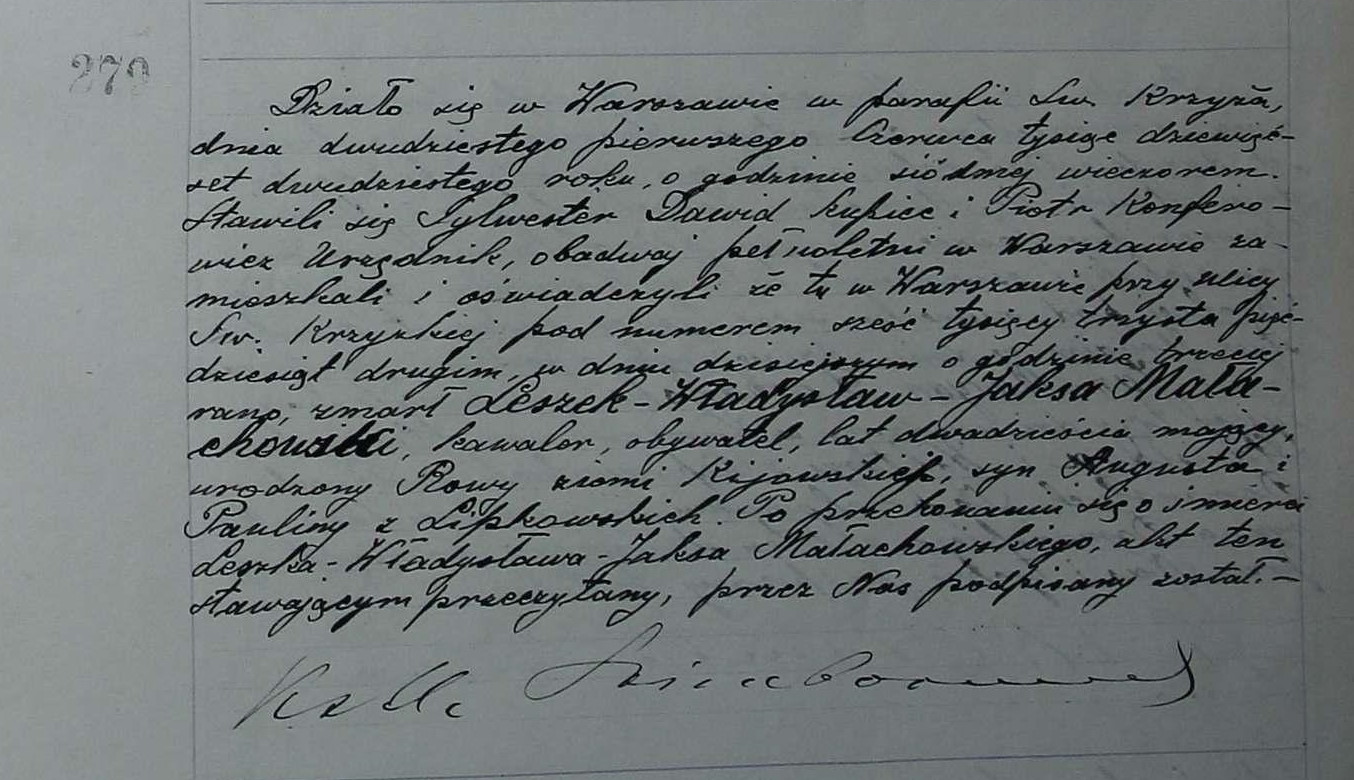 279
Działo się w Warszawie w parafii Św. Krzyża,
dnia dwudziestego pierwszego Czerwca tysiąc dziewięć-
set dwudziestego roku, o godzinie siódmej wieczorem.
Stawili się Sylwester Dawid kupiec i Piotr Konfero-
wicz Urzędnik, obadwaj pełnoletni w Warszawie za-
mieszkali i oświadczyli że tu w Warszawie przy ulicy
Św. Krzyzkiej pod numerem sześć tysięcy trzysta pięć-
dziesiąt drugim, w dniu dzisiejszym o godzinie trzeciej
rano, zmarł Leszek-Władysław-Jaksa Mała-
chowski, kawaler, obywatel, lat dwadzieścia mający,
urodzony Rowy ziemi Kijowskiej, syn Augusta i
Pauliny z Lipkowskich. Po przekonaniu się o śmierci
Leszka-Władysława-Jaksa Małachowskiego, akt ten
stawającym przeczytany, przez Nas podpisany został.-